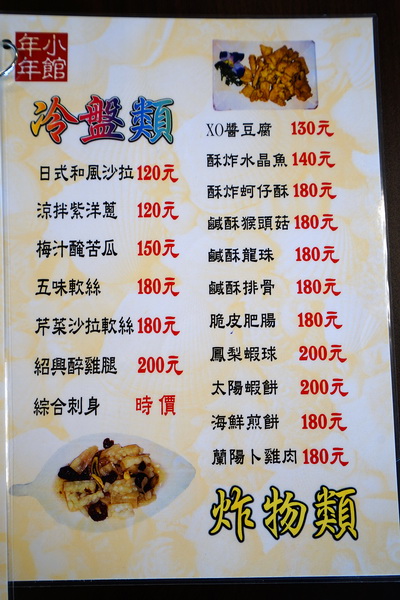 年年小館
冷盤類
日式和風沙拉 120元
涼拌紫洋蔥 120元
梅汁醃苦瓜 150元
五味軟絲 180元
芹菜沙拉軟絲 180元
紹興醉雞腿 200元
綜合刺身 時價
XO醬豆腐 130元
酥炸水晶魚 140元
酥炸蚵仔酥 180元
鹹酥猴頭菇 180元
鹹酥龍珠 180元
鹹酥排骨 180元
脆皮肥腸 180元
鳳梨蝦球 200元
太陽蝦餅 200元
海鮮煎餅 180元
蘭陽卜雞肉 180元
炸物類